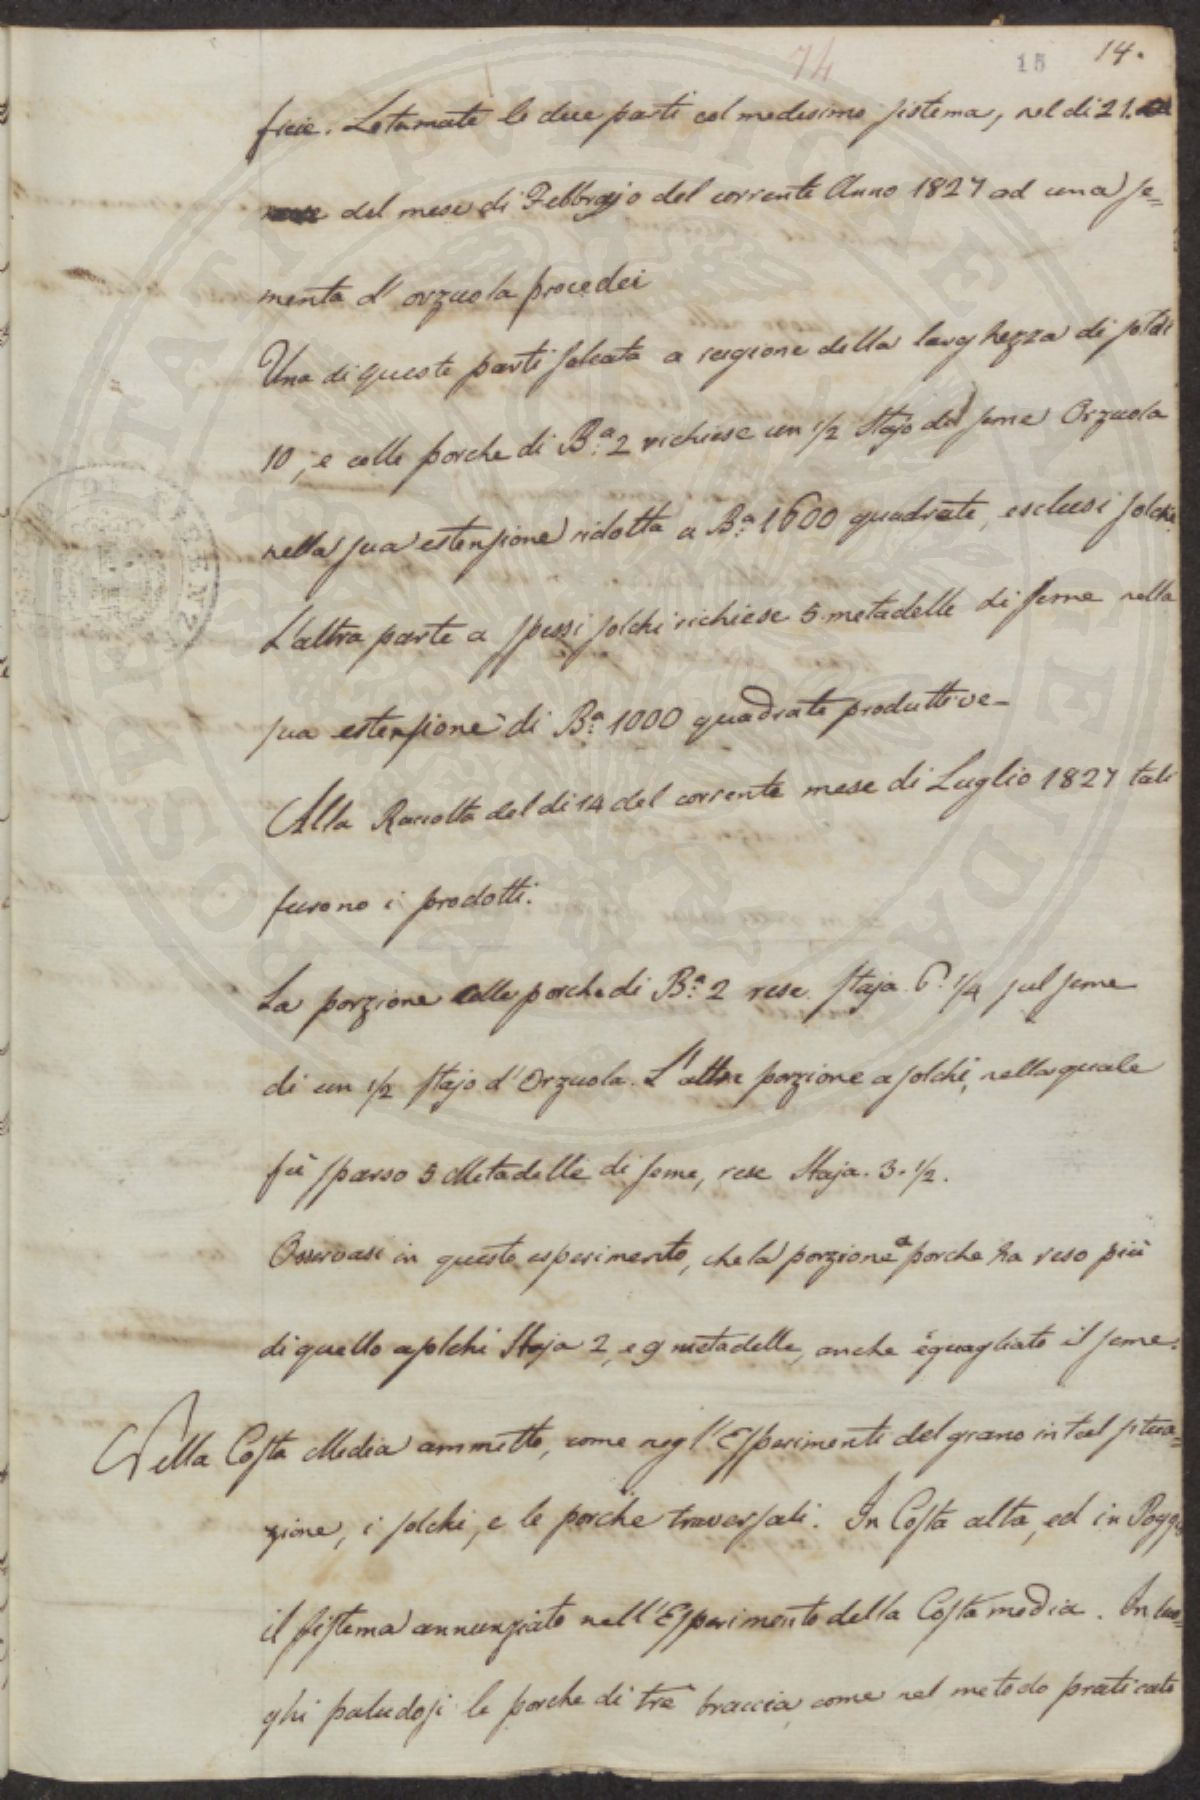 74 15 14.
ficie. Letamate le due parti col medesimo sistema, nel di 21.
del mese di Febbrajo del corrente Anno 1827 ad una se=
menta d' orzuola procedei
Una di queste parti solcata a ragione della larghezza di soldi
10, e colle porche di B.a 2 richiese un 1/2 Stajo di seme Orzuola
nella sua estensione ridotta a B.a 1600 quadrate, esclusi solchi
L'altra parte a spessi solchi richiese 5 metadelle di seme nella
sua estensione di B.a 1000 quadrate produttive_
Alla Raccolta del di 14 del corrente mese di Luglio 1827 tali
furono i prodotti.
La porzione colle porche di B.a 2 rese Staja 6. 1/4 sul seme
di un 1/2 stajo d'Orzuola. L'altra porzione a solchi, nella quale
fù sparso 5 Metadelle di seme, rese Staja. 3. 1/2.
Osservasi in questo esperimento, che la porzione a porche ha reso più
di quello a solchi Staja 2, e 9 metadelle, anche eguagliato il seme.
Nella Costa Media ammetto, come negl'Esperimenti del grano in tal situa=
zione, i solchi, e le porche traversali. In Costa alta, ed in Poggio
il sistema annunziato nell'Esperimento della Costa media. In luo=
ghi paludosi le porche di tre braccia, come nel metodo praticato